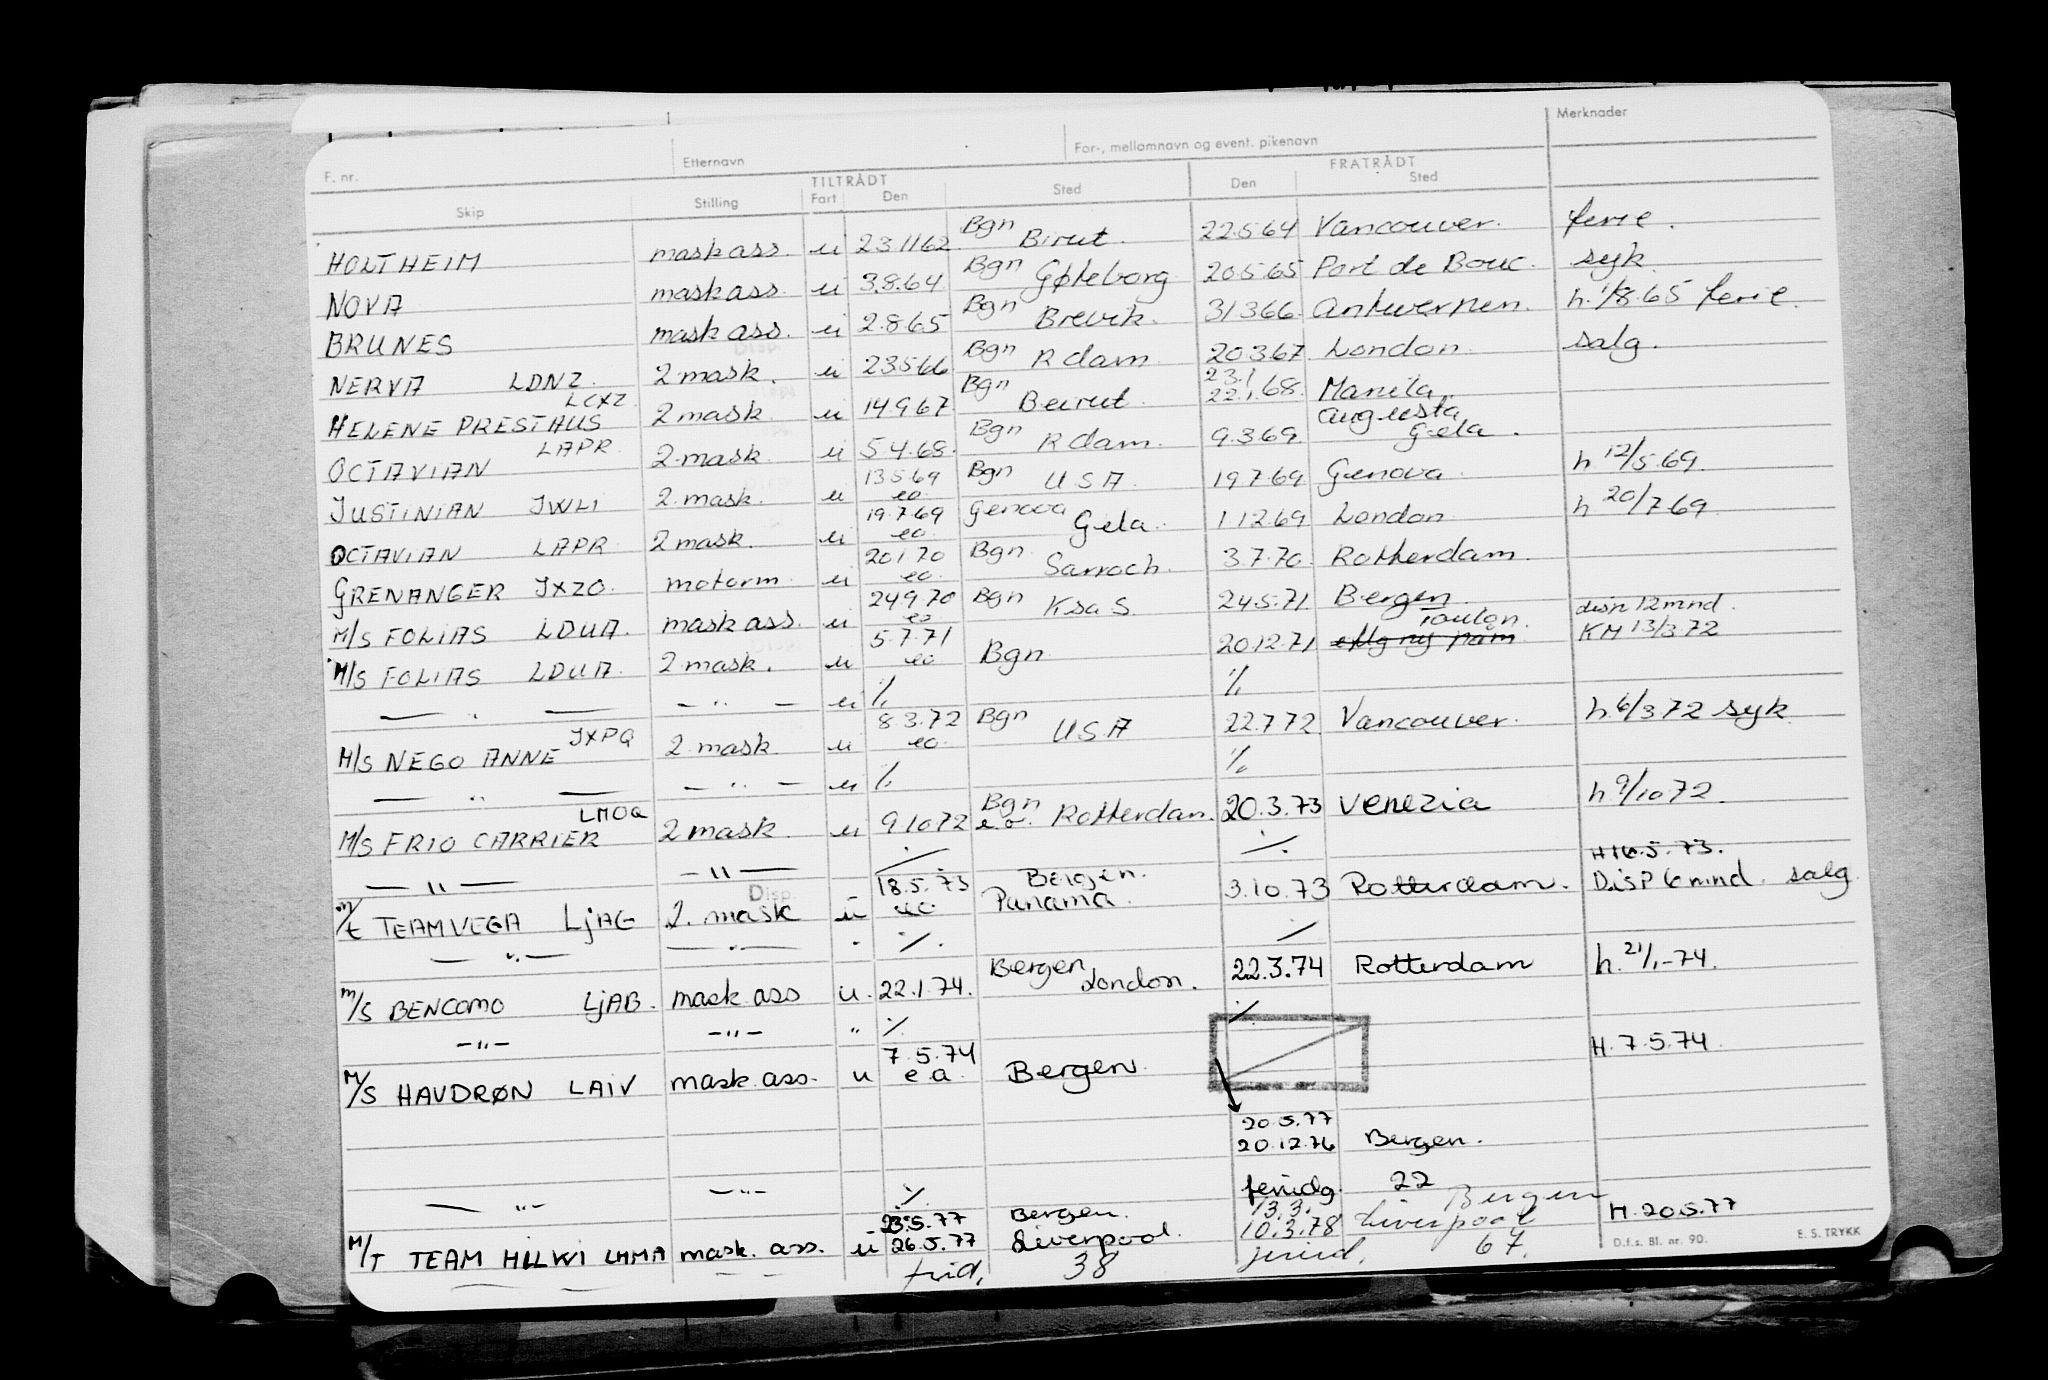 Merknader
F. nr. Etternavn For-, mellomnavn og event. pikenavn
TILTRÅDT FRATRÅDT
Skip Stilling Fart Den Sted Den Sted
HOLTHEIM mask ass. u 23.11 62 Bgn Birut. 22.5.64 Vancouver. ferie.
NOVA mask ass u 3.8.64 Bgn Gøteborg 20.5.65 Port de Bouc. syk
BRUNES mask ass. u 2.8.65 Bgn Brevik. 31366 Antwerpen. h. 1/8.65 ferie.
NERVA LDNZ. 2 mask. u 23566 Bgn R dam 20367 London. salg.
HELENE PRESTHUS LCXZ 2 mask. u 14967 Bgn Beirut. 23.1 22.1.68 Manila.
OCTAVIAN LAPR 2 mask. u 5 4.68. Bgn R dam. 9.3.69. Augusta Gela.
JUSTINIAN JWLI 2 mask. u 13569 eo. Bgn USA. 19769 Genova h 12/5.69.
OCTAVIAN LAPR 2 mask. u 19.7.69 eo. Genova Gela. 11269 London h 20/7 69.
GRENANGER JXZO. motorm. u 20170 eo. Bgn Sarroch. 3.7.70. Rotterdam.
M/S FOLIAS LDUA. mask ass. u 24970 eo Bgn Ksa S. 245.71 Bergen
M/S FOLIAS LDUA. 2 mask. u 5.7.71 eo Bgn 2012.71 Toulon. disp 12 mnd. KM 13/3.72
— " — — " — u % %
M/S NEGO ANNE JXPQ 2 mask u 8 3.72 eo. Bgn USA 22772 Vancouver. h 6/3 72 syk
— " — — " — u % %
M/S FRIO CARRIER LMOQ 2 mask. u 91072 Bgn e.o. Rotterdam. 20.3.73 Venezia h 9/10 72.
— " — — " — % %
M/T TEAMVEGA LJAG 2. mask Disp u 18.5.73 eo Bergen. Panama. 3.10.73 Rotterdam. H 16.5.73. DISP 6 mnd. salg
— " — — " — " % /
M/S BENCOMO LJAB. mask ass u. 22.1.74. Bergen London. 22.3.74 Rotterdam h. 21/1-74.
— " — — " — " % %
M/S HAVDRØN LAIV mask. ass. u 7.5.74 e a Bergen H. 7.5.74
20.5.77
20.12.76 Bergen.
— " — — " — % feriedg. 22
M/T TEAM HILWI LHMA mask. ass. u 23.5.77 26.5.77 Bergen. Liverpool. 13.3. 10.3.78 Bergen Liverpool H. 20.5.77
38 67.
D.f.s. Bl. nr. 90. E. S. TRYKK